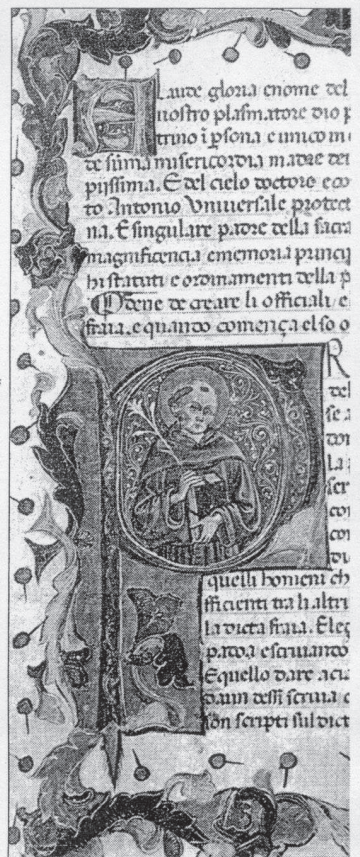 Laude gloria enome del
nostro plasmatore dio p
trino i psona e unico in e
de suma misericordia madre dei
piissima. E del cielo doctore e co
to Antonio Vniuersale protect
na. E singulare padre della sacra
magnificencia ememoria princip
hi statuti e ordinamenti della p
Odene de creare li officiali e
fraia. e quando començа el so o
R
del
se a
dor
La
scr
con
cor
du
quelli homeni ch
fficienti tra li altri
la dicta fraia. Eleg
padoa e scriuando
Equello dare a ci
daun dessi scriua e
son scripti sul dict